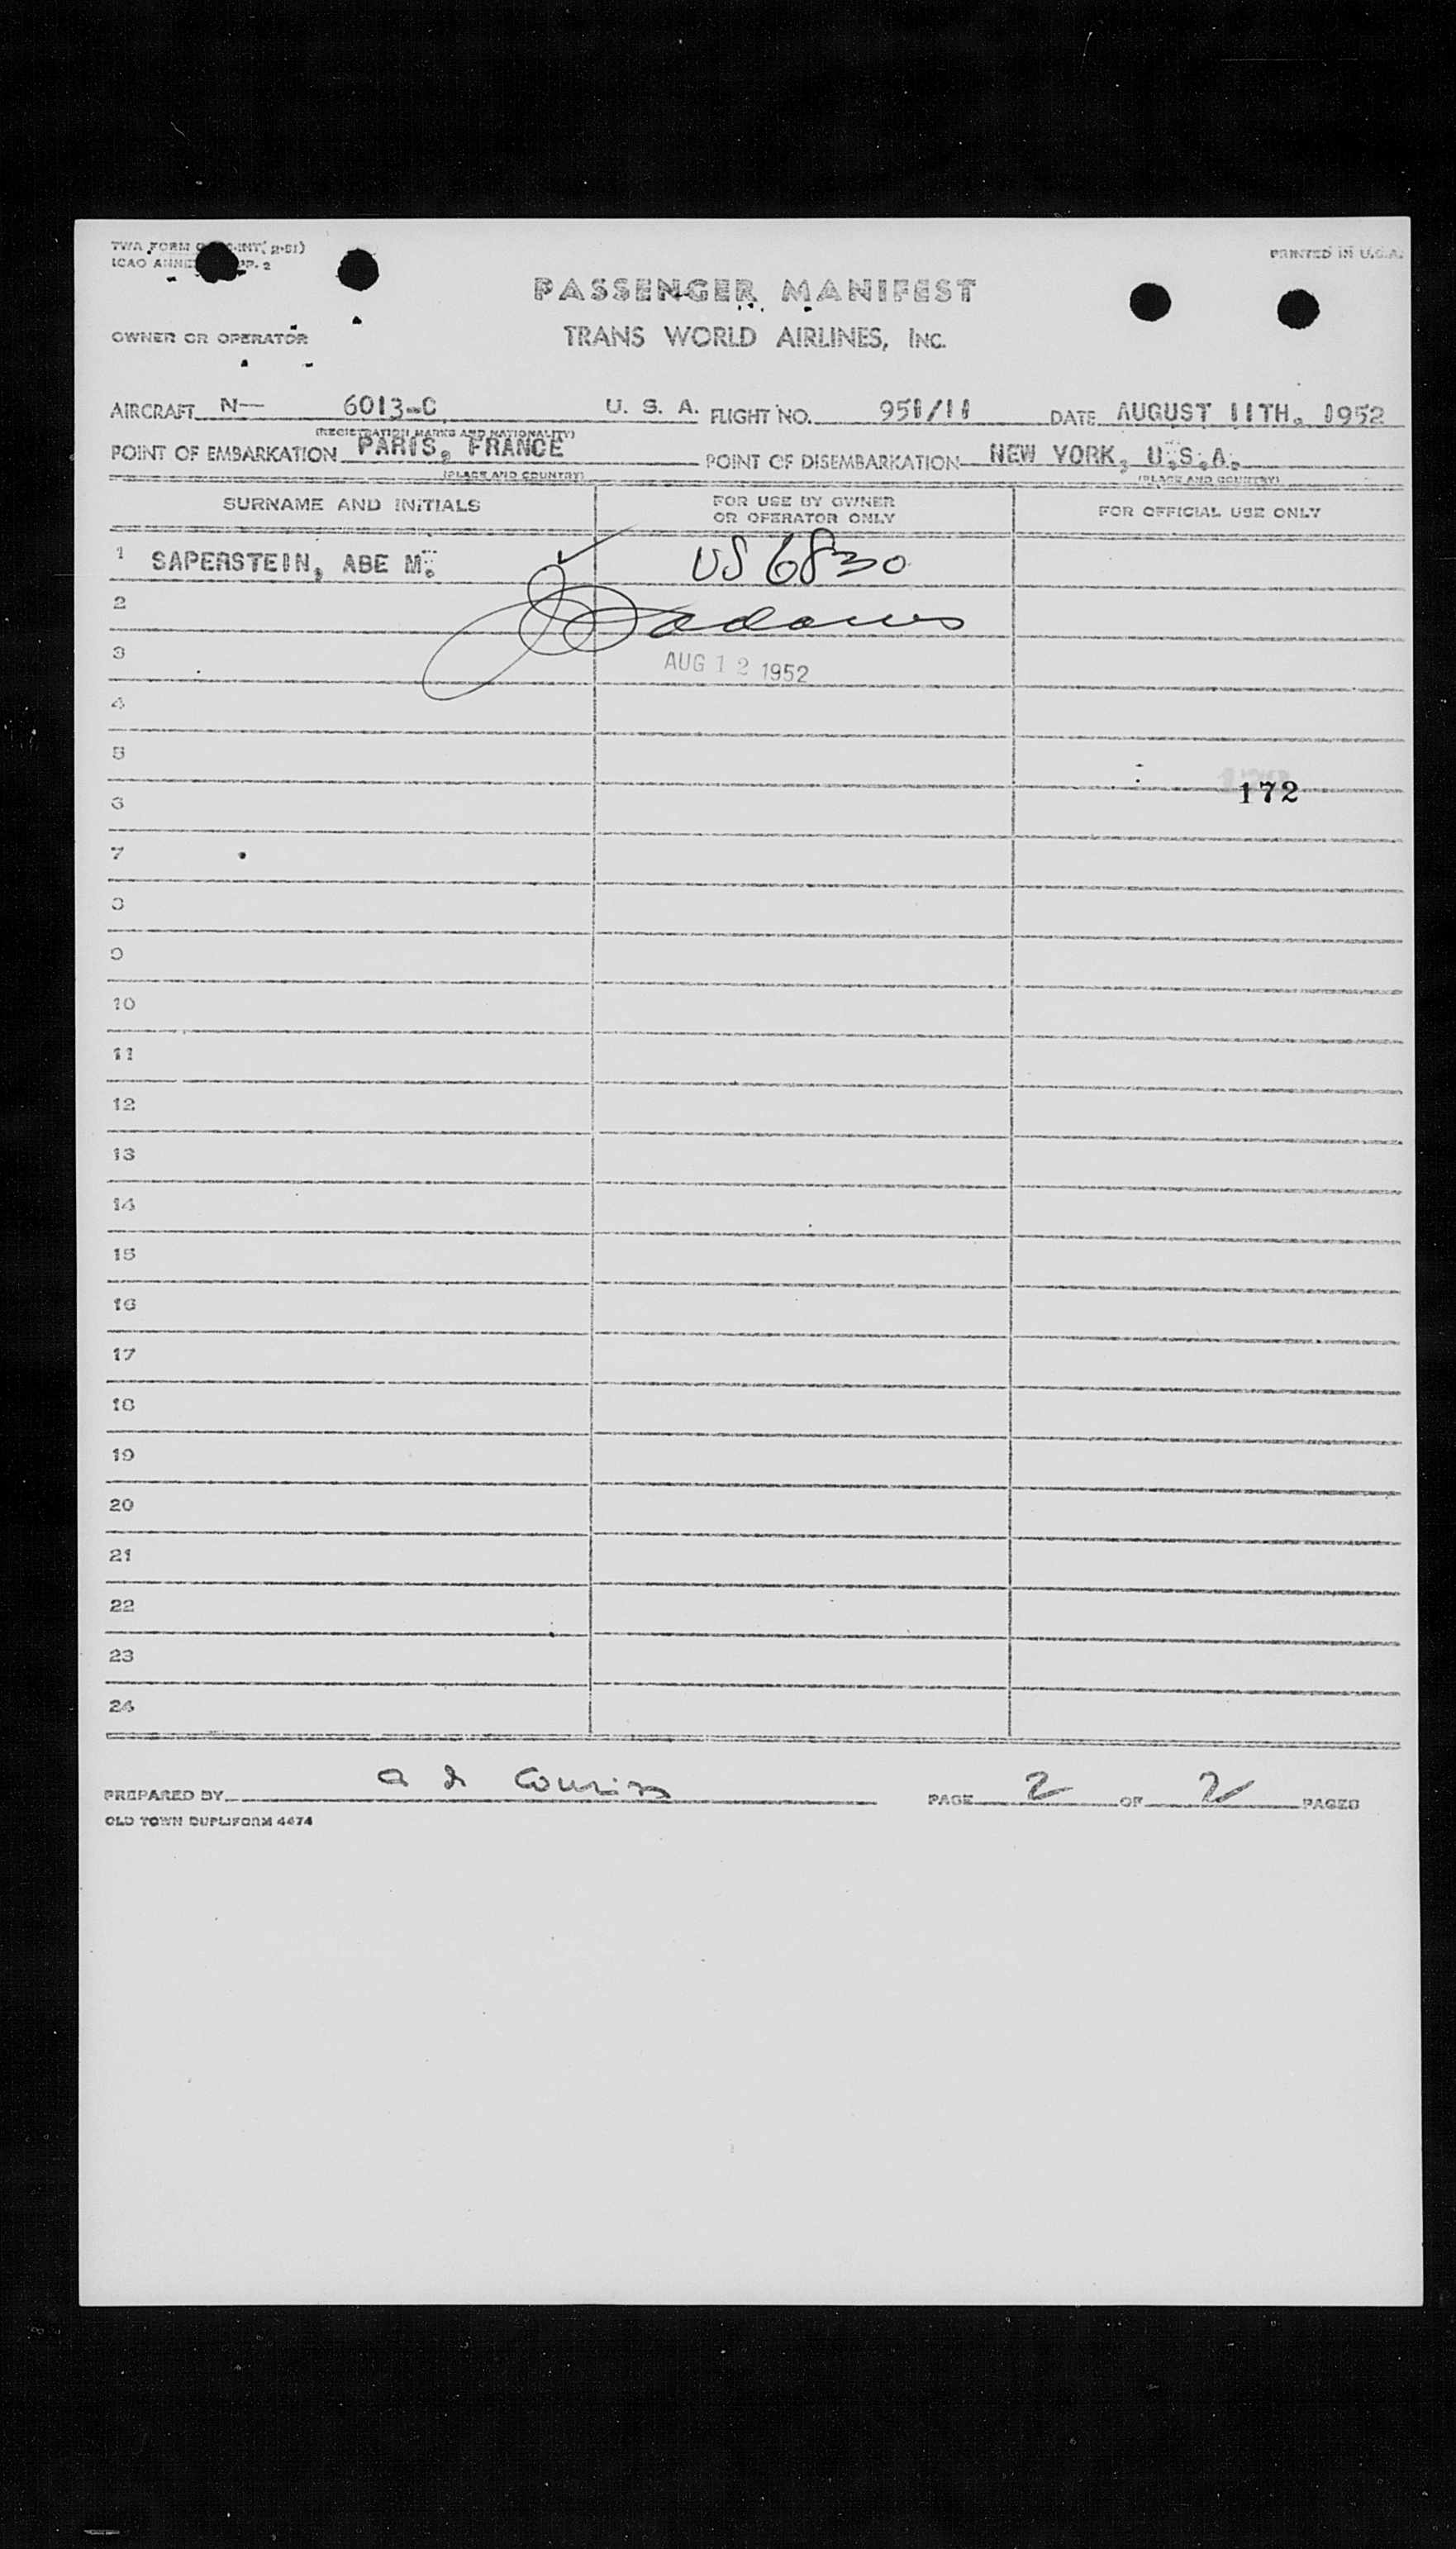 TWA FORM INT( 2-51)
PRINTED IN U.S.A.
ICAO PP. 2
PASSENGER MANIFEST
OWNER OR OPERATOR
TRANS WORLD AIRLINES, INC.
AIRCRAFT N— 6013-C U. S. A. FLIGHT NO. 951/11 DATE AUGUST 11TH. 1952
(REGISTRATION MARKS AND NATIONALITY)
POINT OF EMBARKATION PARIS, FRANCE POINT OF DISEMBARKATION NEW YORK, U.S.A.
(PLACE AND COUNTRY) (PLACE AND COUNTRY)
SURNAME AND INITIALS FOR USE BY OWNER OR OPERATOR ONLY FOR OFFICIAL USE ONLY
1 SAPERSTEIN, ABE M. US 6830
2 Adams
3 AUG 12 1952
4
5
172
6
7
8
9
10
11
12
13
14
15
16
17
18
19
20
21
22
23
24
PREPARED BY PAGE 2 OF 2 PAGES
OLD TOWN DUPLIFORM 4474